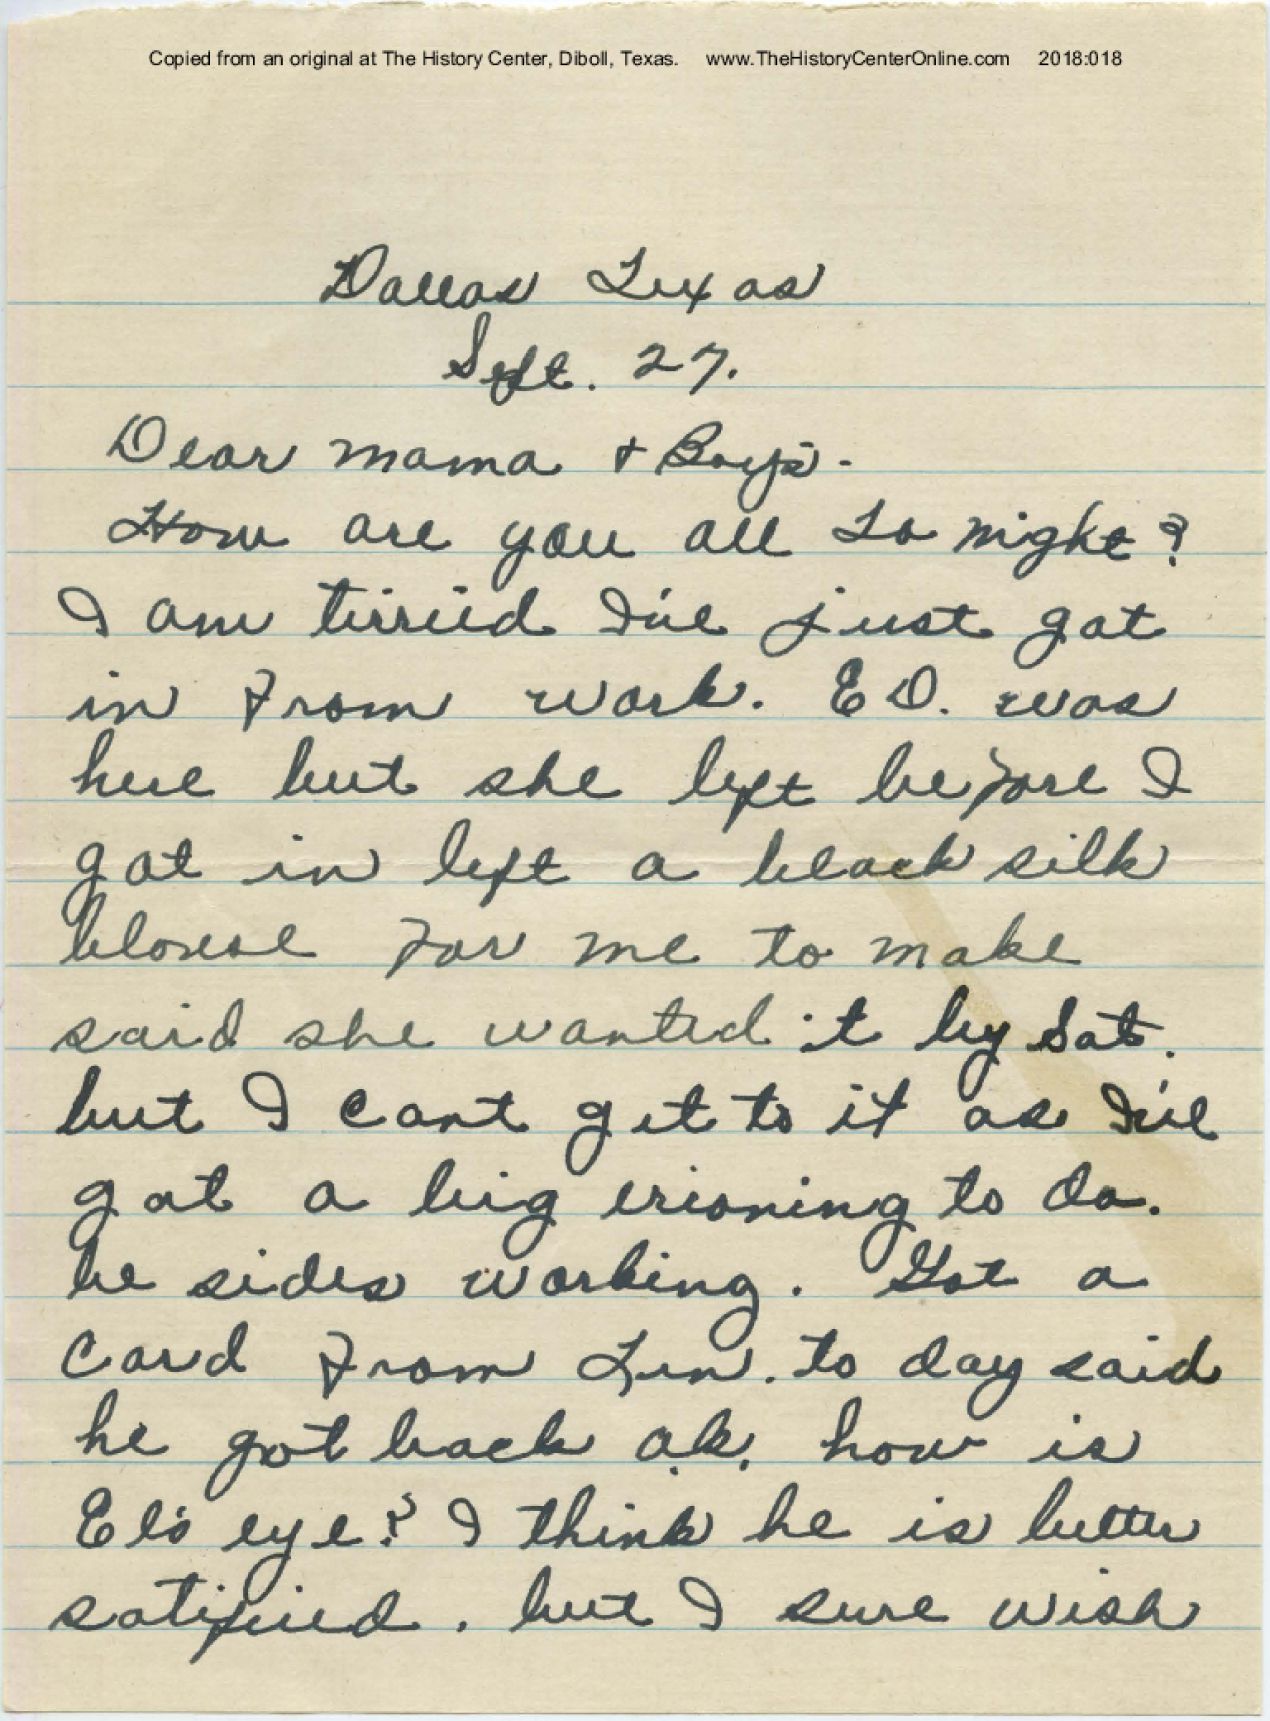 Copied from an original at The History Center, Diboll, Texas. www.TheHistoryCenterOnline.com 2018:018
Dallas Texas
Sept. 27.
Dear mama + Boys.
How are you all to night?
I am tirried I've just got
in from work. E D. was
here but she left before I
got in left a black silk
blouse for me to make
said she wanted it by Sat.
but I cant get to it as I've
got a big irioning to do.
be sides working. Got a
card from Len. to day said
he got back o.k. how is
El's eye? I think he is better
satifiied. but I sure wish